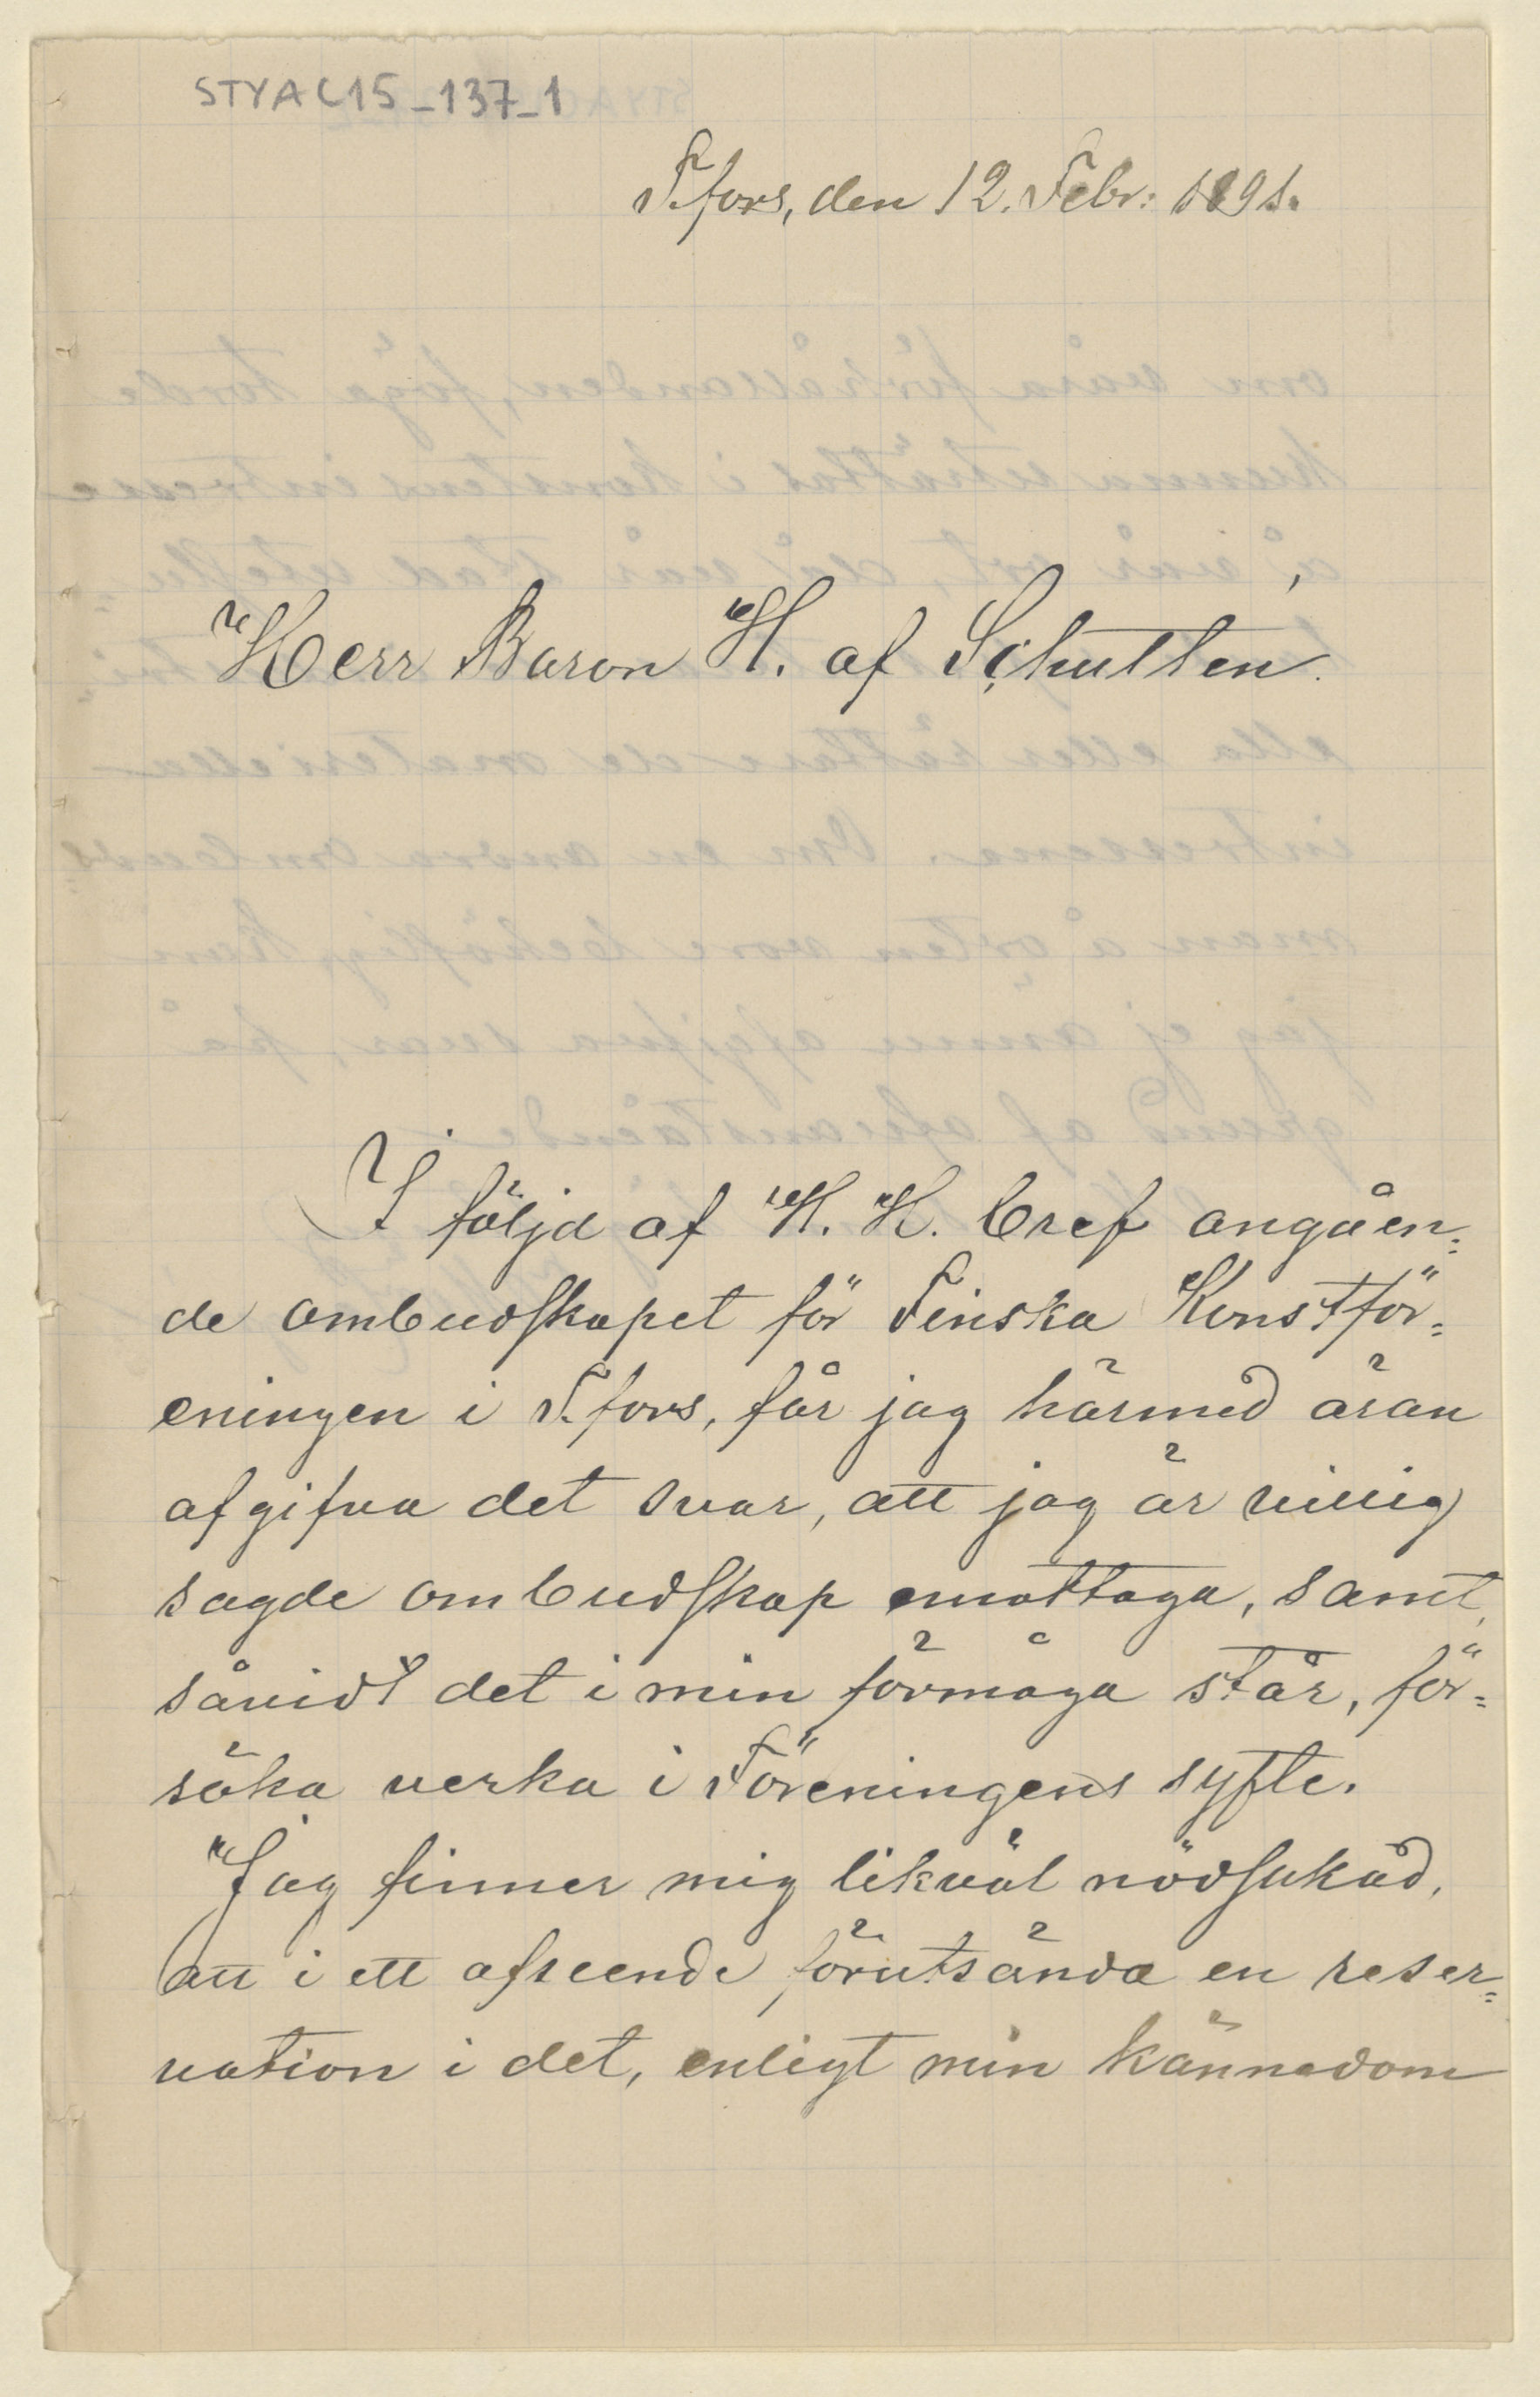 STYA C15_137_1
T.fors, den 12. Febr: 1891.
Herr Baron H. af Schultén.
I följd af H. H. bref angåen=
de ombudskapet för Finska Konstför=
eningen i T.fors, får jag härmed äran
afgifva det svar, att jag är villig
sagde ombudskap emottaga, samt,
såvidt det i min förmåga står, för=
söka verka i Föreningens syfte.
Jag finner mig likväl nödsakad,
att i ett afseende förutsända en reser=
vation i det, enligt min kännedom